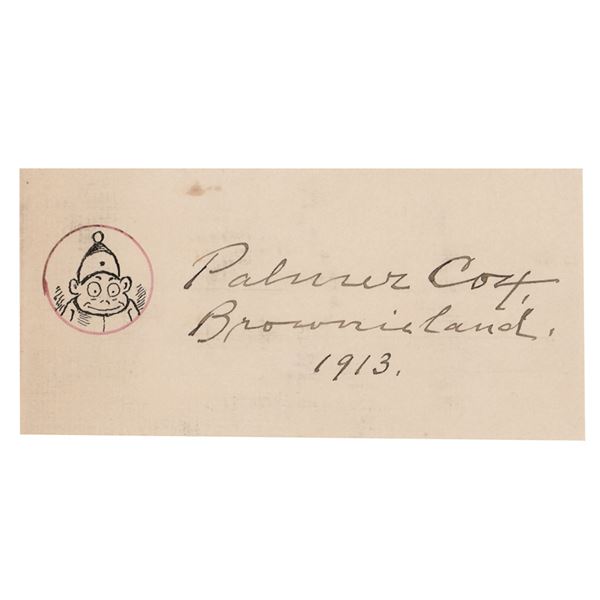 Palmer Cox,
Brownieland.
1913.